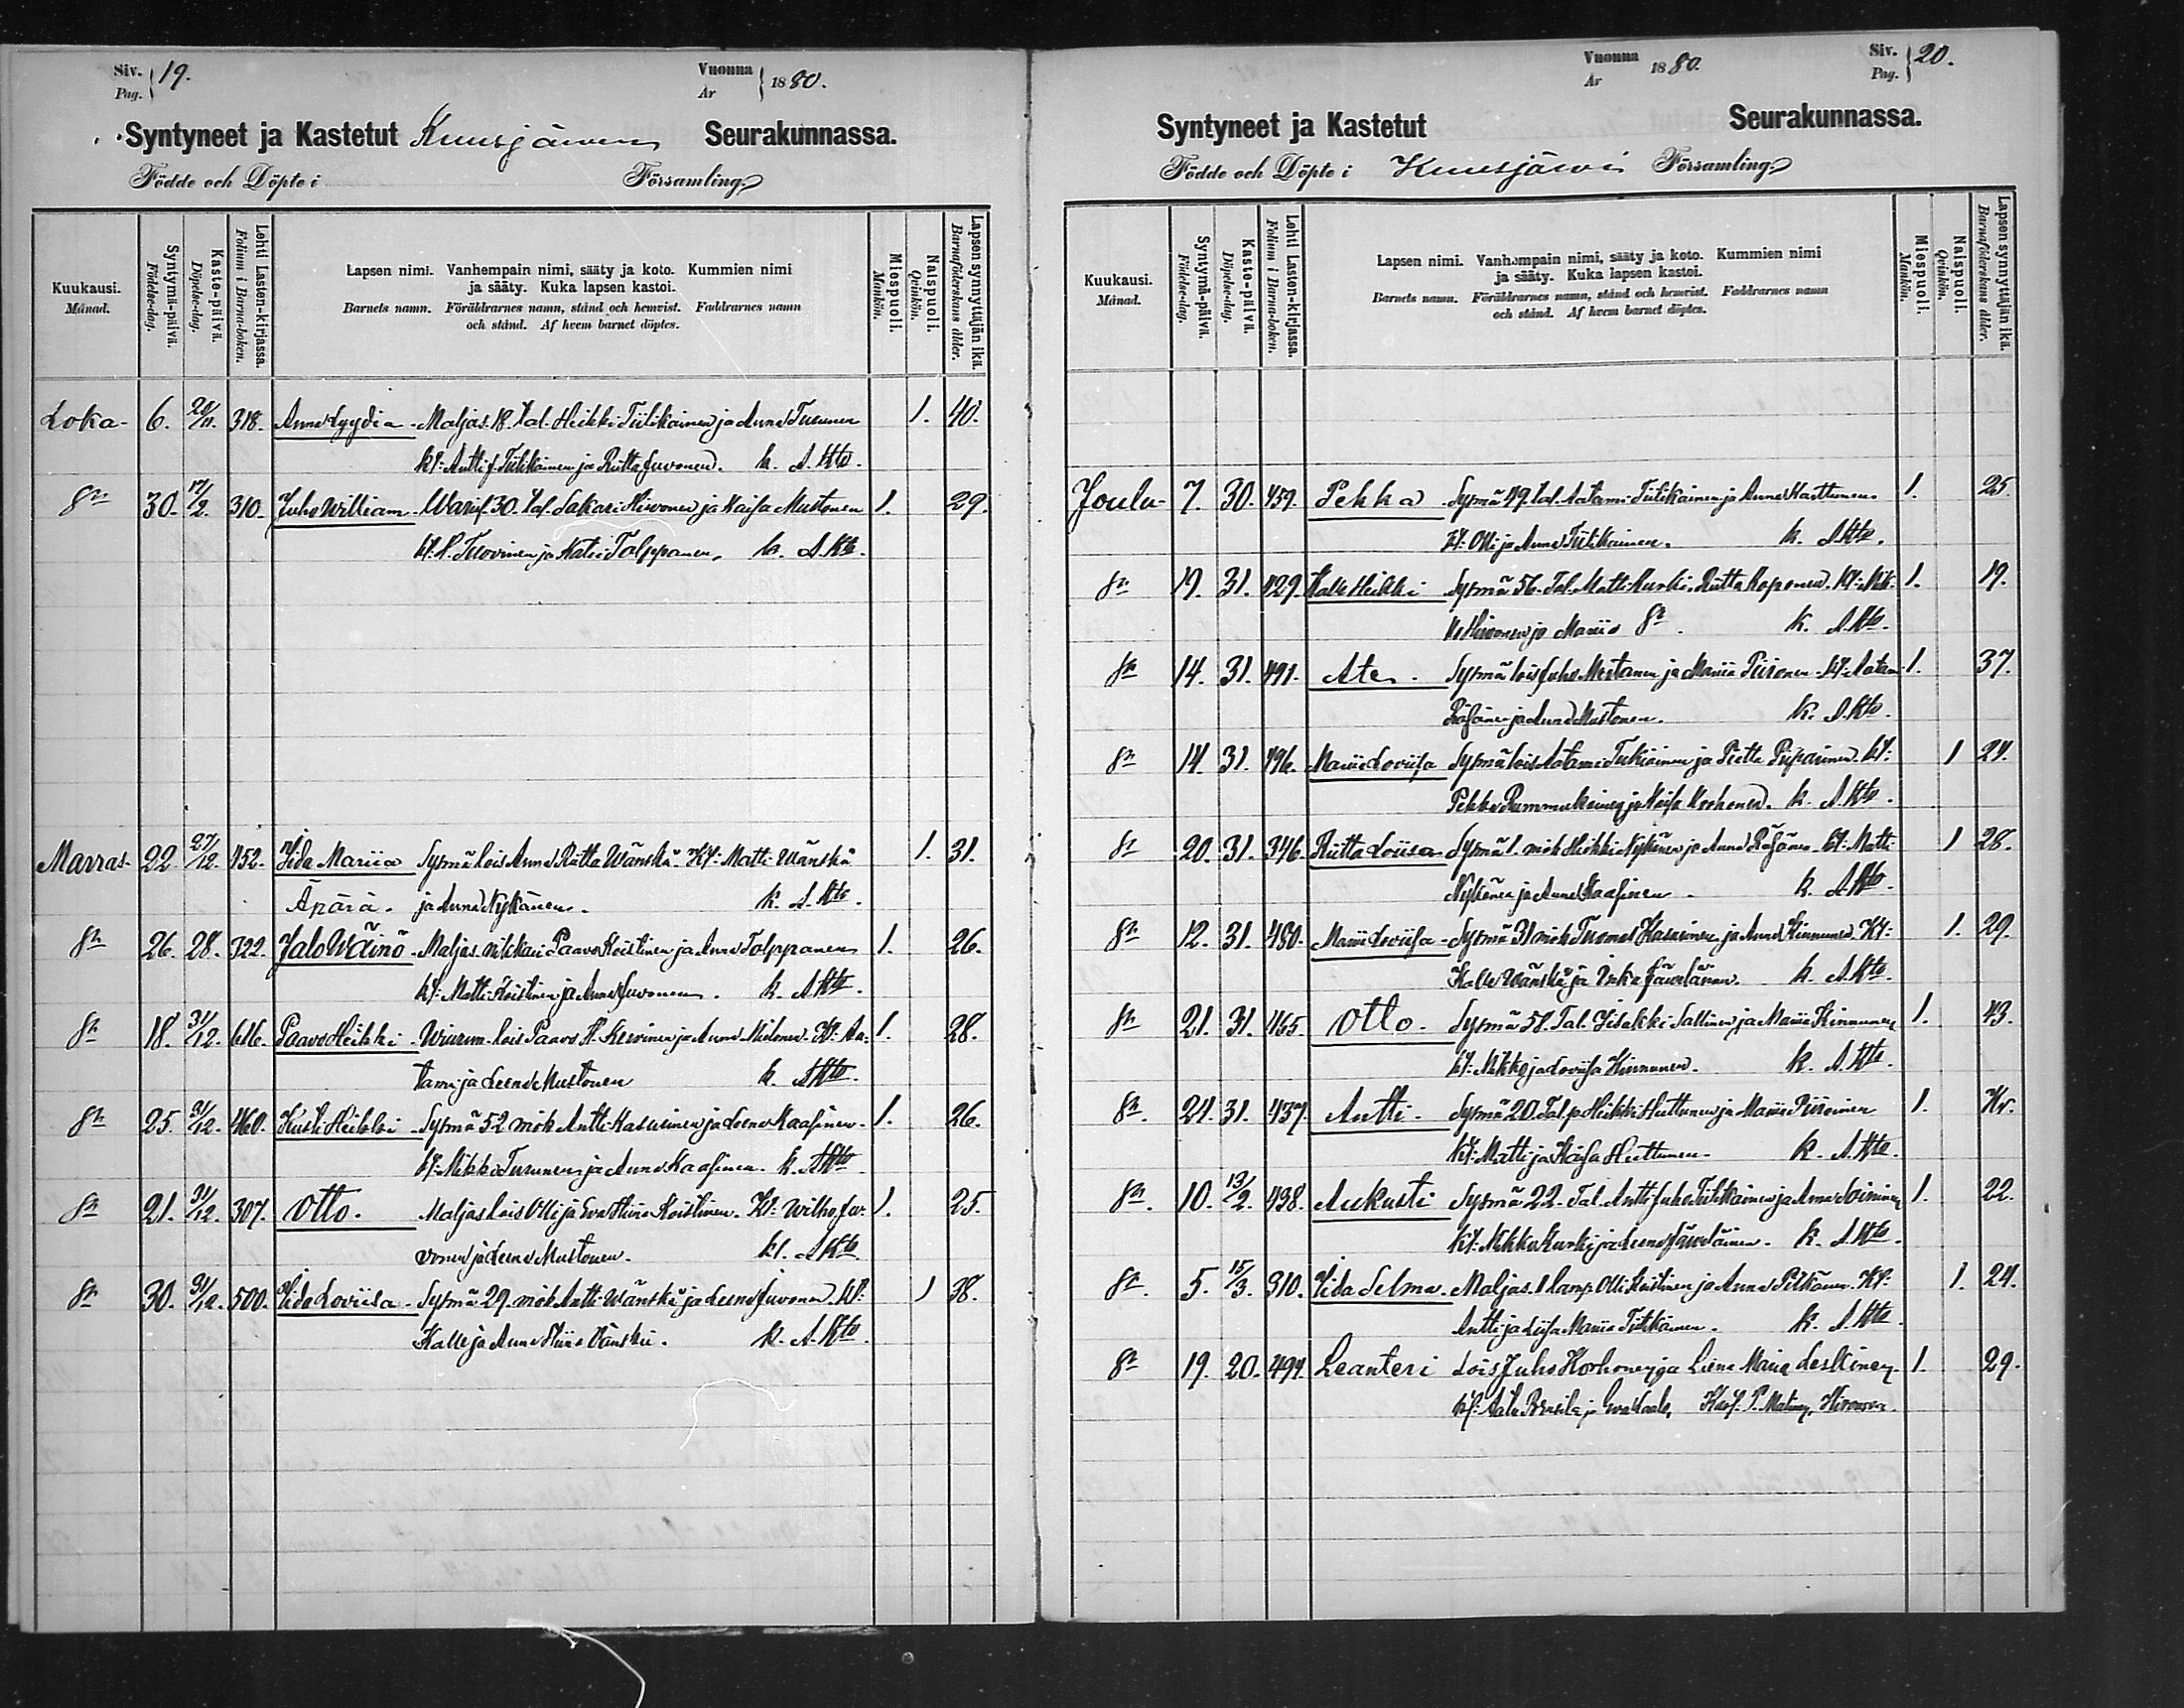 Siv. Pag. 19.
Vuonna År 1880.
Syntyneet ja Kastetut Kuusjärven Seurakunnassa.
Födde och Döpte i Församling
Kuukausi. Månad.
Syntymä-päivä. Födelse-dag.
Kaste-päivä. Döpelse-dag.
Lehti Lasten-kirjassa. Folium i Barna-boken.
Lapsen nimi. Vanhempain nimi, sääty ja koto. Kummien nimi
ja sääty. Kuka lapsen kastoi.
Barnets namn. Föräldrarnes namn, stånd och hemvist. Faddrarnes namn
och stånd. Af hvem barnet döptes.
Miespuoli. Mankön.
Naispuoli. Qvinkön.
Lapsen synnyttäjän ikä. Barnaföderskans ålder.
Loka- 6. 20/11. 318. Anna Lyydia - Maljas. 18. Tal. Heikki Tiilikainen ja Anna Turunen 1. 40.
kt: Antti J. Tiilikainen ja Riitta Juvonen. k. A. Kto.
Sn 30. 17/2. 310. Juho William - 30. Tal. Sakari Hirvonen ja Kaisa Mustonen 1. 29.
kt. H. Turvinen ja Tolppanen. k. A. Kto.
Marras- 22. 27/12. 452. Iida Mariia Sysmä lois Anna Riitta Wänskä. Kt: Matti Wänskä 1. 31.
Äpärä. ja Anna Nykänen. k. A. Kto.
Sn 26. 28. 322. Jalo Wäinö - Maljas. nikkari Paavo Koistinen ja Anna Tolppanen 1. 26.
kt: Matti Koistinen ja Anna Juvonen. k. A. Kto.
Sn 18. 31/12. 616. Paavo Heikki - lois Paavo H. ja Anna Miilonen. Kt: Aa- 1. 28.
tami ja Leena Mustonen k. A Kto.
Sn 25. 31/12. 460. Kusti Heikki - Sysmä 52 mök Antti Hasuinen ja Leena Kaasinen. 1. 26.
kt: Mikko Turunen ja Anna Kaasinen. k. A Kto.
Sn 21. 31/12. 307. Otto. Maljas lois Olli ja Eva Stiina Koistinen. Kt: Wilho Ju- 1. 25.
vonen ja Leena Mustonen. k. A Kto
Sn 30. 31/12. 500. Iida Loviisa - Sysmä 29. mök Antti Wänskä ja Leena Juvonen. kt: 1 38.
Kalle ja Anna Stiina Vänskä. k. A. Kto.
Vuonna År 1880.
Siv. Pag. 20.
Syntyneet ja Kastetut Seurakunnassa.
Födde och Döpte i Kuusjärvi Församling
Kuukausi. Månad.
Syntymä-päivä. Födelse-dag.
Kaste-päivä. Döpelse-dag.
Lehti Lasten-kirjassa. Folium i Barna-boken.
Lapsen nimi. Vanhempain nimi, sääty ja koto. Kummien nimi
ja sääty. Kuka lapsen kastoi.
Barnets namn. Föräldrarnes namn, stånd och hemvist. Faddrarnes namn
och stånd. Af hvem barnet döptes.
Miespuoli. Mankön.
Naispuoli. Qvinkön.
Lapsen synnyttäjän ikä. Barnaföderskans ålder.
Joulu- 7. 30. 459. Pekka Sysmä 49. Tal. Aatami Tiilikainen ja Anna Karttunen 1. 25.
kt: Olli ja Anna Tiilikainen. k. A Kto.
Sn 19. 31. 429. Kalle Heikki Sysmä 56. Tal. Matti Kurki, Riitta Roponen. Kt: Mik- 1. 19.
ko Hirvonen ja Mariia Sn. k. A. Kto.
Sn 14. 31. 491. Ate. Sysmä lois Juho Mustonen ja Mariia Piironen. kt: Aatam 1. 37.
Räsänen ja Anna Mustonen. k. A. Kto.
Sn 14. 31. 496. Mariia Loviisa Sysmä lois Aatami Tukiainen ja Riitta Piiparinen. kt: 1 24.
Pekka Rummukainen ja Kaisa Korhonen. k. A. Kto.
Sn 20. 31. 346. Riitta Loviisa Sysmä 1. mök Heikki Nykänen ja Anna Räsänen. kt: Matti 1 28.
Nykänen ja Anna Kaasinen. k. A Kto.
Sn 12. 31. 480. Mariia Loviisa - Sysmä 31 mök Tuomas Hasuinen ja Anna Kinnunen. Kt: 1. 29.
Kalle Wänskä ja Inka Jäveläinen. k. A. Kto.
Sn 21. 31. 465. Otto. Sysmä 58. Tal. Iisakki Sallinen ja Mariia Kinnunen 1. 43.
kt: Mikko ja Loviisa Kinnunen. k. A. Kto.
Sn 24. 31. 437. Antti. Sysmä 20. Tal. p. Heikki Huttunen ja Mariia Piiroinen 1.
kt: Matti ja Kaisa Huttunen. k. A. Kto.
Sn. 10. 13/2. 438. Aukusti Sysmä 22. Tal. Antti Juho Tiilikainen ja Anna Soininen 1. 22.
kt: Mikko Kurki ja Leena Jäveläinen. k. A Kto.
Sn. 5. 15/3. 310. Iida Selma. Maljas. 1 Olli Koistinen ja Anna Pitkänen. Kt: 1. 24.
Antti ja Liisa Mariia Tiilikainen. k. A. Kto.
Sn 19. 20. 494. Leanteri Lois Juho Korhonen ja Liena Maria Leskinen. 1. 29.
kt: P. Hirvonen.